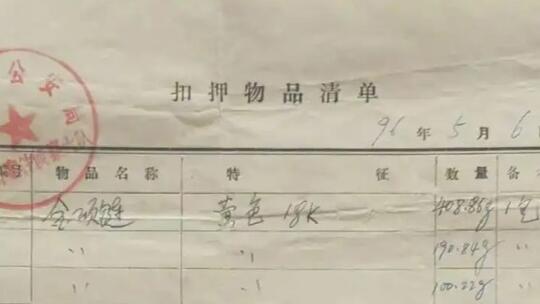 公安局
扣押物品清单
96年5月6
号 物品名称 特征 数量 备
金项链 黄色 18K 408.86g 1包
〃 〃 190.84g 〃
〃 〃 100.22g 〃